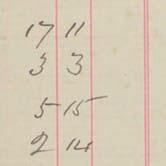 17 11
3 3
5 15
2 14